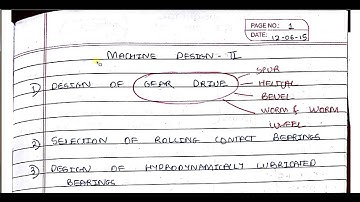 PAGE NO.: 1
DATE: 12-06-15
MACHINE DESIGN - II
1) DESIGN OF GEAR DRIVE
SPUR
HELICAL
BEVEL
WORM & WORM
WEEL
2) SELECTION OF ROLLING CONTACT BEARINGS
3) DESIGN OF HYDRODYNAMICALLY LUBRICATED
BEARINGS